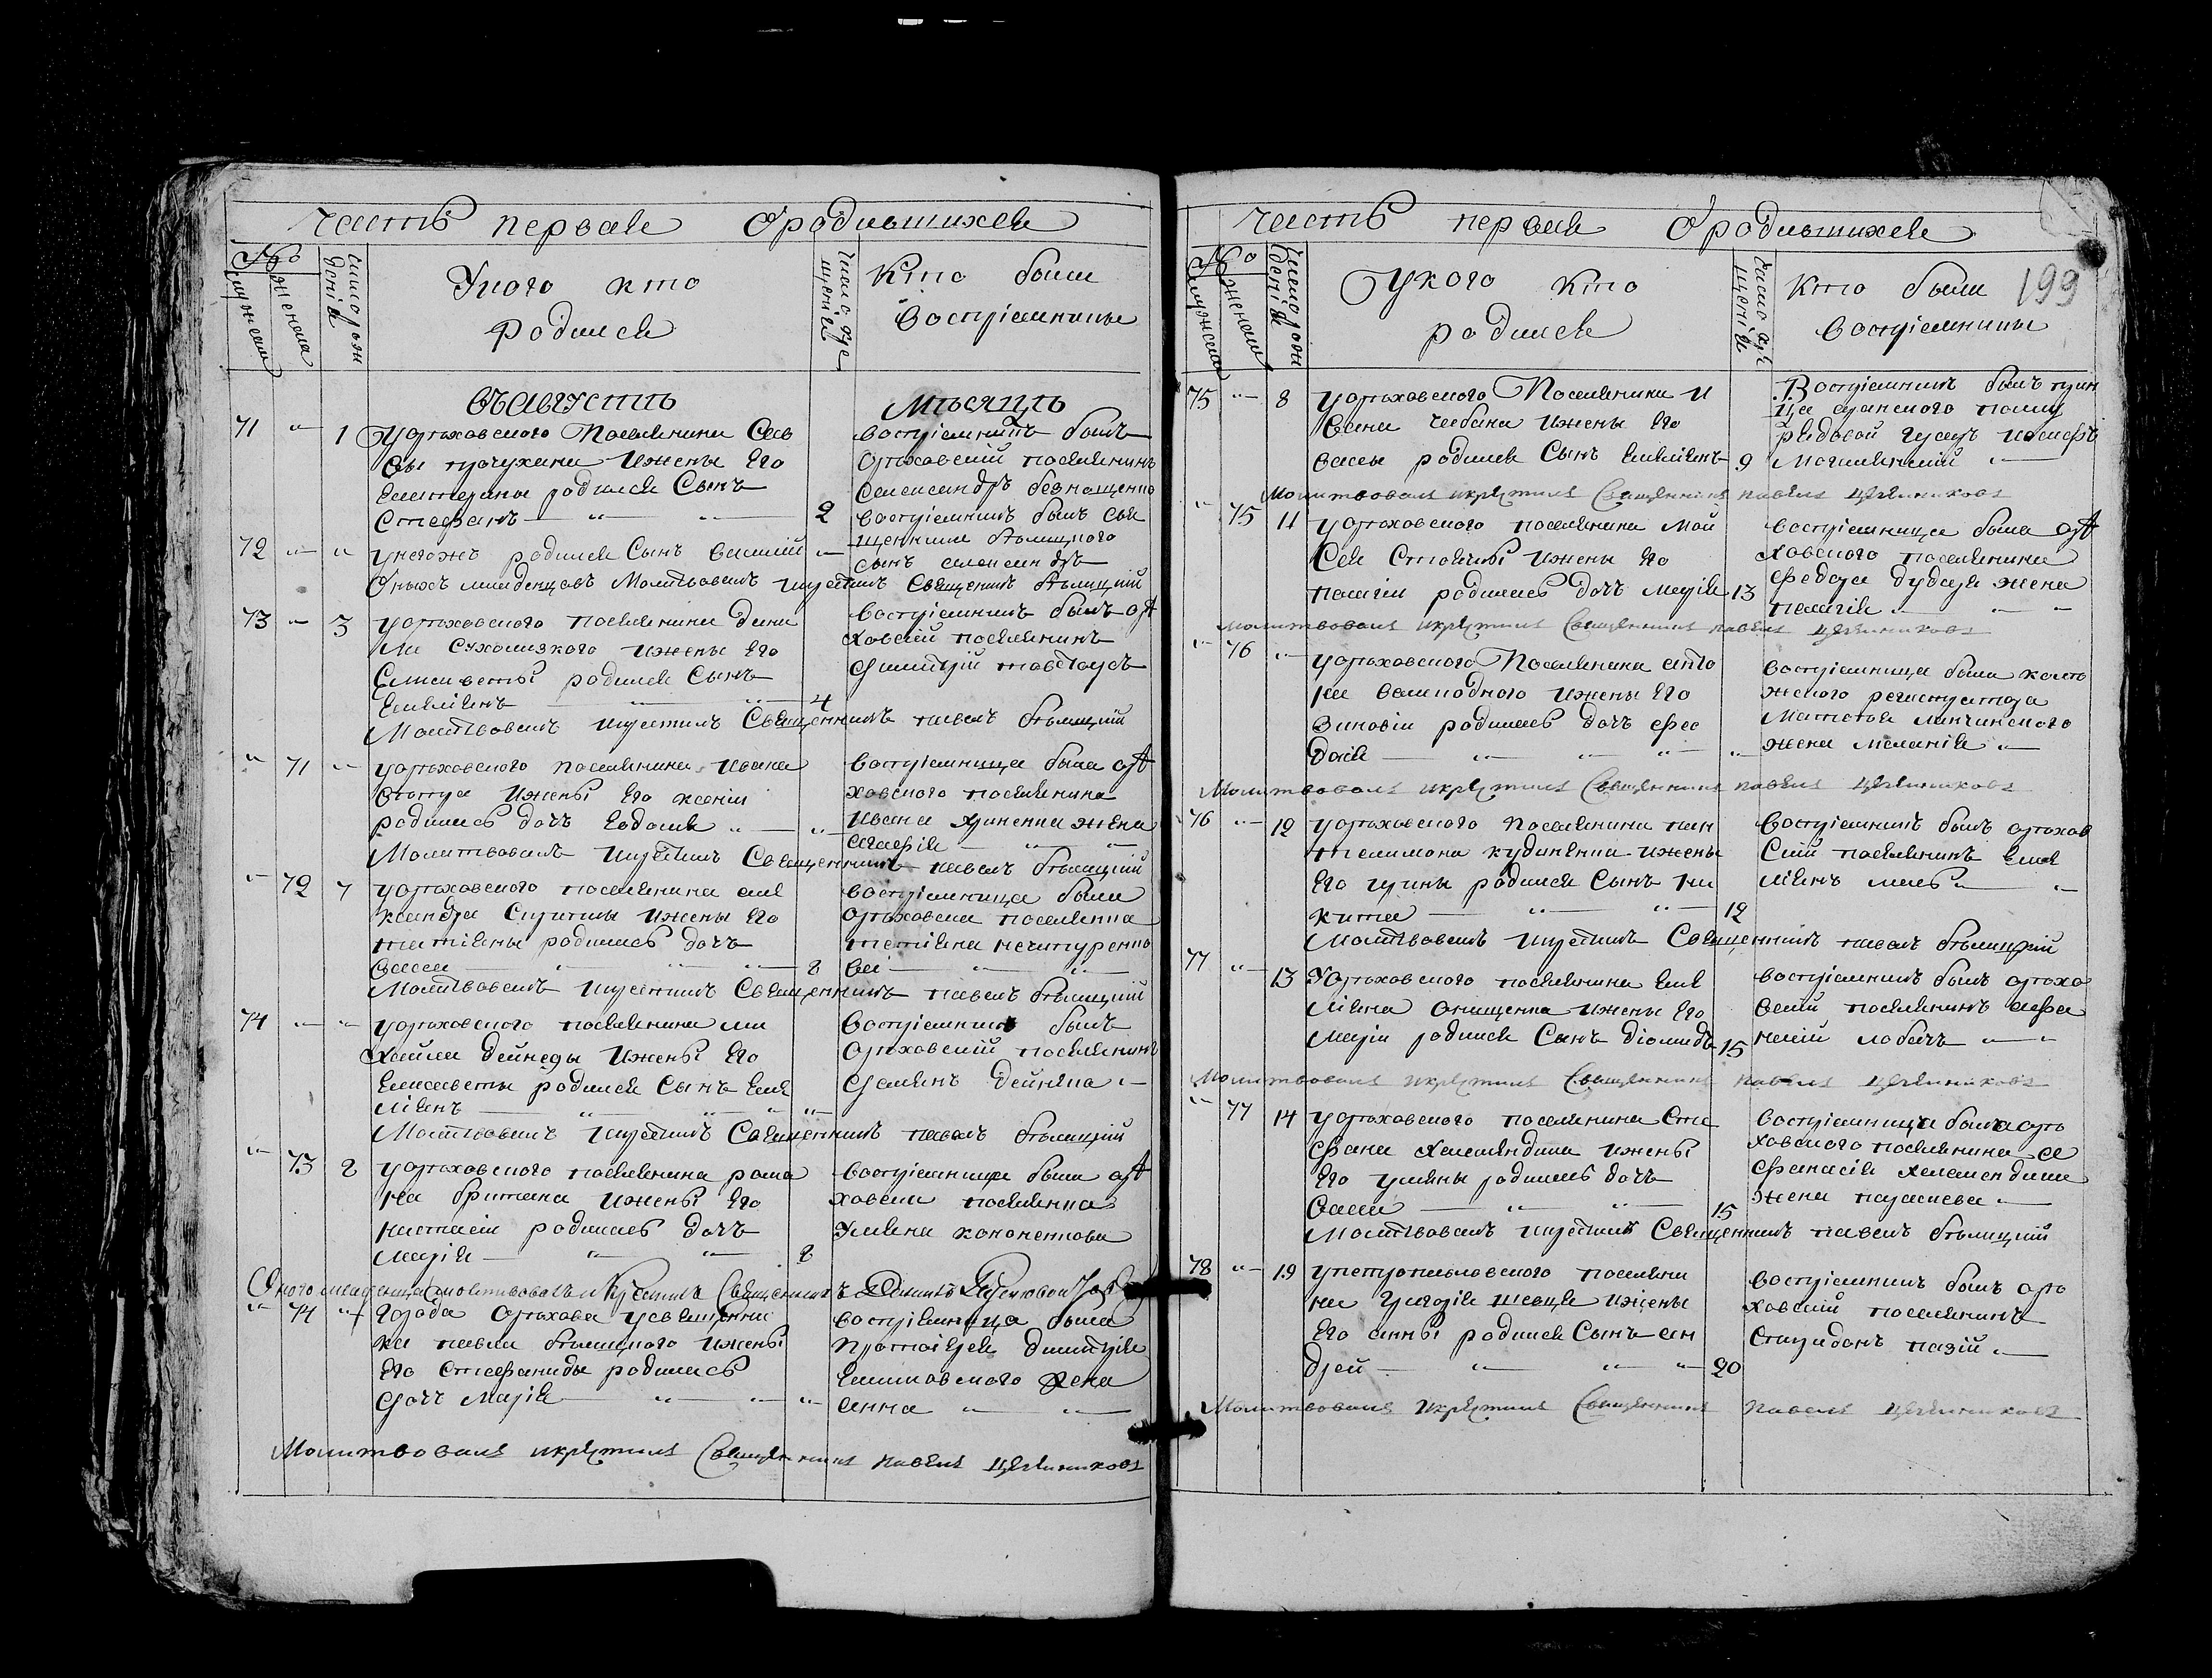 Часть первая О родившихся
№
мужеск
женска
число рож
денія
У кого кто
родился
Число кре
щенія
Кто были
Воспріемники
ВЪАВГУСТѢ Мѣсяцѣ
71 " 1 Уорѣховского Поселянина Сав
вы прочухана Ижены Его
Екатерины родился Сынъ
Стефанъ — " — 2
воспріемникъ былъ
орѣховскій поселянинъ
александръ безнощенко
72 " " унегожъ родился Сынъ василій "
воспріемникъ былъ свя
щенника бѣлицкого
сынъ александръ
Оныхъ младенцовъ Молитвовалъ икрестилъ Священникъ бѣлицкій
73 " 3 уорѣховского поселянина дани
ла Ижены Его
Елисаветы родился Сынъ
Емеліянъ — " — 4
Воспріемникъ былъ орѣ
ховскій поселянинъ
димитрій товстоусъ
Молитвовалъ икрестилъ Священникъ павелъ бѣлицкій
" 71 " уорѣховского поселянина ивана
Ижены Его ксеніи
родилась дочъ Евдокія " — "
Воспріемница была орѣ
ховского поселянина
Ивана жена
агафія — " "
Молитвовалъ икрестилъ Священникъ павелъ бѣлицкій
" 72 7 уорѣховского поселянина але
ксандра Ижены Его
татіяны родилась дочъ
васса — " — " — 8
воспріемница была
орѣховска поселянка
татіяна нечитуренко
ва — " — "
Молитвовалъ икрестилъ Священникъ павелъ бѣлицкій
74 " " уорѣховского поселянина ми
хайла дейнеды Ижены Его
Елисаветы родился Сынъ Еме
ліянъ — " — " "
Воспріемникъ былъ
Орѣховскій поселянинъ
Даміянъ "
Молитвовалъ икрестилъ Священникъ павелъ бѣлицкій
" 73 8 уорѣховского поселянина рома
на британа Ижены Его
настасіи родилась дочъ
марія — " — " — 8
воспріемница была орѣ
ховска поселянка
Уліяна кононенкова
Оного младенца молитвовалъ и Крестилъ Священникъ
" 74 " города Орѣхова усвященни
ка павла бѣлицкого Ижены
Его Стефаниды родилась
дочъ Марія — " — "
воспріемница была
протоіерея димитрія
жена
анна " — "
Молитвовалъ икрестилъ Священникъ павелъ
Часть первая О родившихся
199
№
мужеска
женска
Число рож
денія
У кого кто
родился
Число кре
щенія
Кто были
воспріемники
75 " 8 уорѣховского Поселянина И
вана чабана Ижены Его
вассы родился Сынъ Емеліянъ 9
Воспріемникъ былъ
полку
рядовой Гусаръ иосифъ
Могилянскій "
Молитвовалъ икрестилъ Священникъ павелъ
" 75 11 уорѣховского поселянина Мой
сея Ижены Его
пелагіи родилась дочъ марія 13
воспріемница была орѣ
ховского поселянина
федора дубдуря жена
пелагія " — "
Молитвовалъ икрестилъ Священникъ павелъ
" 76 " уорѣховского Поселянина анто
на великодного Ижены Его
Зиновіи родилась дочъ фео
досія — " — " — " "
воспріемница была
регистратора
Матвѣя жена меланія "
Молитвовалъ икрестилъ Священникъ павелъ
76 " 12 уорѣховского поселянина пан
телимона кудиненка Ижены
Его ирины родился Сынъ ни
кита — " — " — 12
Воспріемникъ былъ орѣхов
скій поселянинъ Еме
ліянъ "
Молитвовалъ икрестилъ Священникъ павелъ бѣлицкій
77 " 13 Уорѣховского поселянина Еме
ліяна онищенка Ижены Его
маріи родился Сынъ діомидъ 15
воспріемникъ былъ орѣхо
вскій поселянинъ афа
насій лобачъ "
Молитвовалъ икрестилъ Священникъ павелъ
" 77 14 уорѣховского поселянина Сте
фана Ижены
Его уліяны родилась дочъ
Васса — " — " — 15
воспріемница была орѣ
ховского поселянина а
фанасія
жена параскева "
Молитвовалъ икрестилъ Священникъ павелъ бѣлицкій
78 " 19 упетропавловского поселяни
на Григорія шевця ижены
Его анны родился Сынъ ан
дрей — " — " " 20
Воспріемникъ былъ орѣ
ховскій поселянинъ
Спиридонъ "
Молитвовалъ икрестилъ Священникъ павелъ